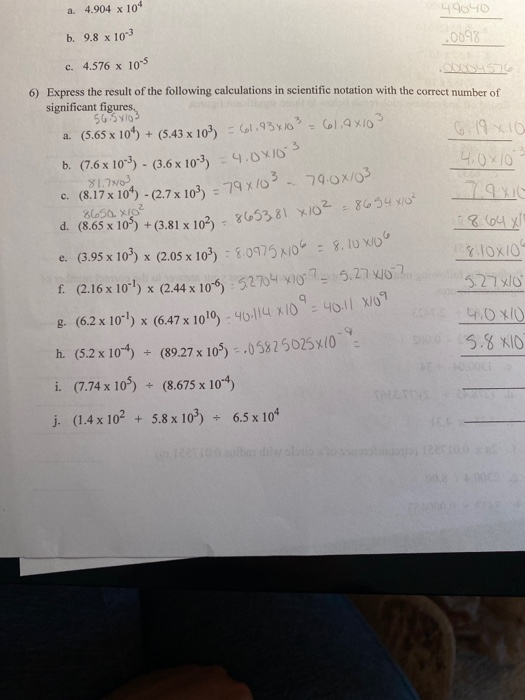 a. 4.904 x 10⁴ 49040
b. 9.8 x 10⁻³ .0098
c. 4.576 x 10⁻⁵ .00004576
6) Express the result of the following calculations in scientific notation with the correct number of
significant figures.
56.5x10³
a. (5.65 x 10⁴) + (5.43 x 10³) = 61.93x10³ = 61.9x10³ 6.19 x 10
b. (7.6 x 10⁻³) - (3.6 x 10⁻³) = 4.0x10⁻³ 4.0x10⁻³
81.7x10³
c. (8.17 x 10⁴) - (2.7 x 10³) = 79x10³ = 79.0x10³ 7.9x10
8650 x10²
d. (8.65 x 10⁵) + (3.81 x 10²) = 8653.81 x10² = 8654 x10² 8.64 x1
e. (3.95 x 10³) x (2.05 x 10³) = 8.0975x10⁶ = 8.10 x10⁶ 8.10x10⁶
f. (2.16 x 10⁻¹) x (2.44 x 10⁻⁶) = 5.2704 x10⁻⁷ = 5.27 x10⁻⁷ 5.27 x10
g. (6.2 x 10⁻¹) x (6.47 x 10¹⁰) = 40.114 x10⁹ = 40.11 x10⁹ 4.0 x10
h. (5.2 x 10⁻⁴) ÷ (89.27 x 10⁵) = .05825025x10⁻⁹ = 5.8 x10
i. (7.74 x 10⁵) ÷ (8.675 x 10⁻⁴)
j. (1.4 x 10² + 5.8 x 10³) ÷ 6.5 x 10⁴